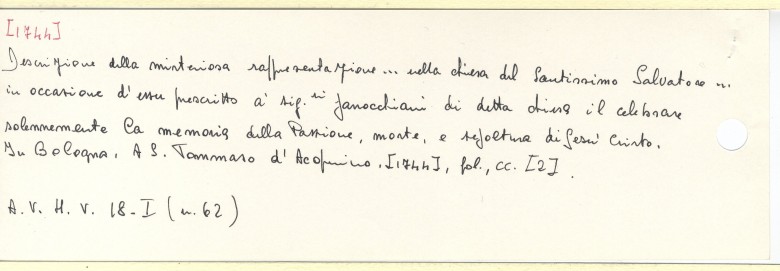 [1744]
Descrizione della misteriosa rappresentazione... nella chiesa del Santissimo Salvatore ...
in occasione d'esser prescritto a' sig.ri parrocchiani di detta chiesa il celebrare
solennemente la memoria della Passione, morte, e sepoltura di Gesù Cristo.
In Bologna, A S. Tommaso d'Acquino, [1744], fol., cc. [2].
A. V. H. V. 18-I (n. 62)